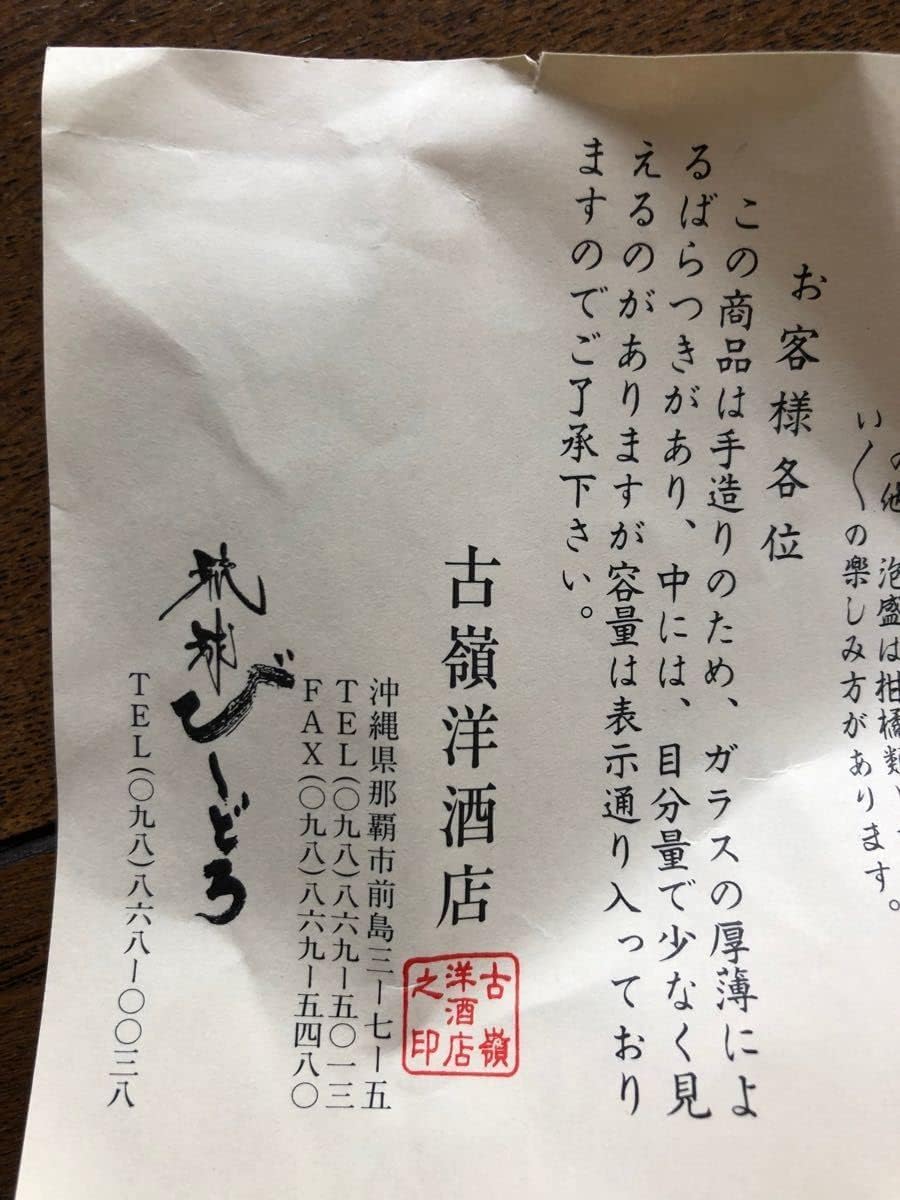 の他、泡盛は柑橘類
い〱の楽しみ方があります。
お客様各位
この商品は手造りのため、ガラスの厚薄によ
るばらつきがあり、中には、目分量で少なく見
えるのがありますが容量は表示通り入っており
ますのでご了承下さい。
古嶺洋酒店
古嶺
洋酒店
之印
沖縄県那覇市前島三ー七ー五
TEL(〇九八)八六九ー五〇一三
FAX(〇九八)八六九ー五四八〇
琉球びーどろ
TEL(〇九八)八六八ー〇〇三八